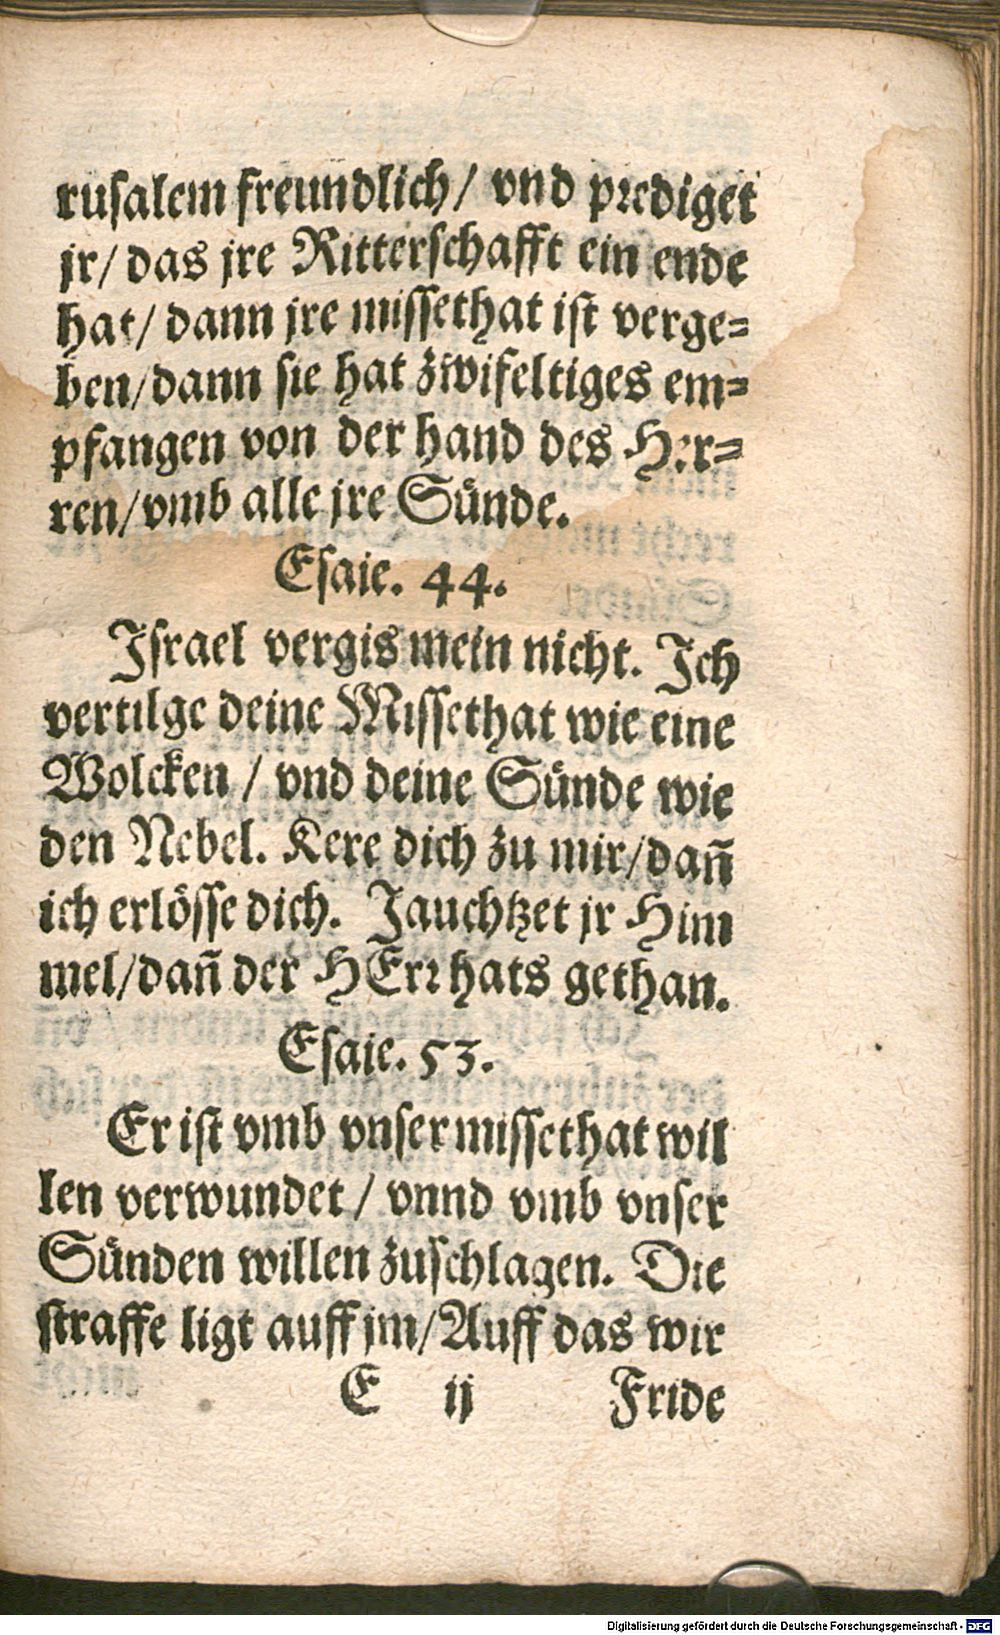 rusalem freundlich/ vnd prediget
jr/ das jre Ritterschafft ein ende
hat/ dann jre missethat ist verge⸗
ben/dann sie hat zwifeltiges em⸗
pfangen von der hand des Her⸗
ren/vmb alle jre Sünde.
Esaie. 44.
Israel vergis mein nicht. Ich
vertilge deine Missethat wie eine
Wolcken / vnd deine Sünde wie
den Nebel. Kere dich zu mir/dañ
ich erlösse dich. Jauchtzet jr Him
mel/dañ der HErr hats gethan.
Esaie. 53.
Er ist vmb vnser missethat wil
len verwundet / vnnd vmb vnser
Sünden willen zuschlagen. Die
straffe ligt auff jm/Auff das wir
E ij Fride
Digitalisierung gefördert durch die Deutsche Forschungsgemeinschaft - DFG